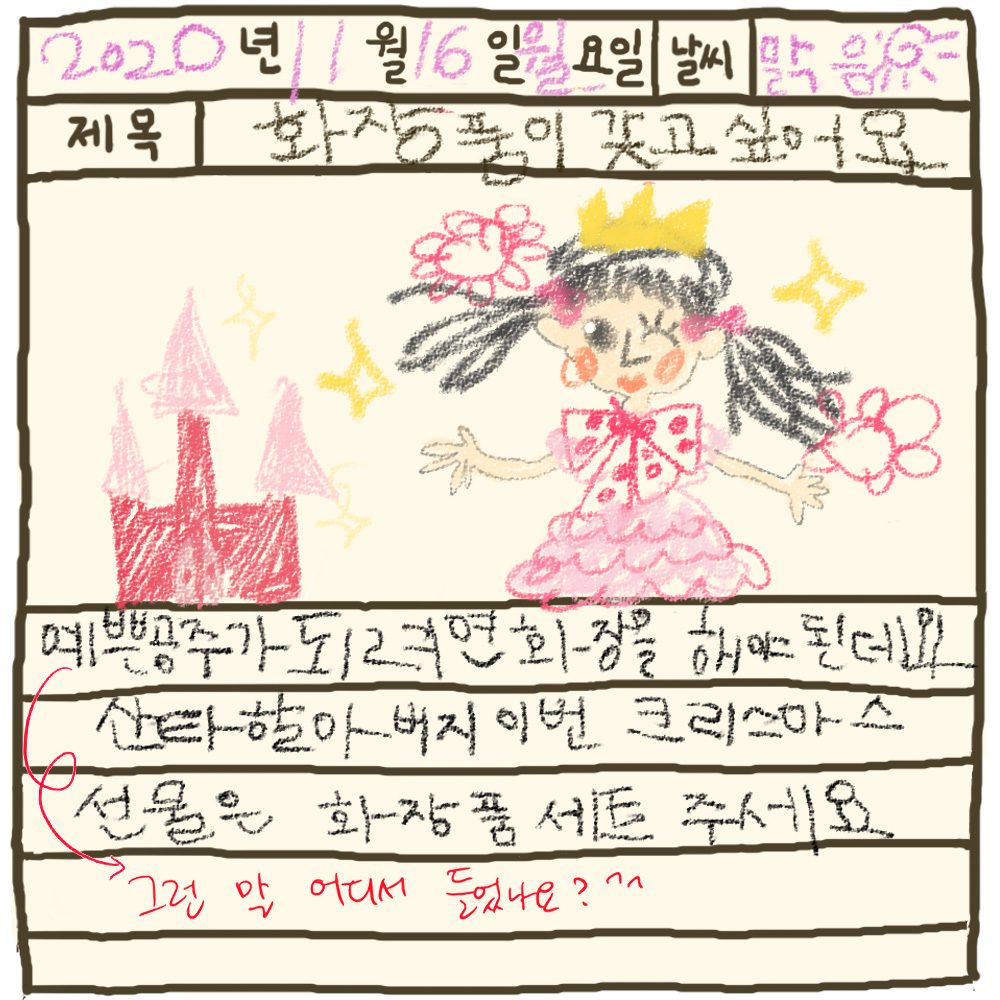 2020년 11월 16일 월요일 날씨 맑음
제목 화장품이 갖고 싶어요
예쁜공주가 되려면 화장을 해야 된데요
산타할아버지 이번 크리스마스
선물은 화장품 세트 주세요
그런 말 어디서 들었나요? ^^